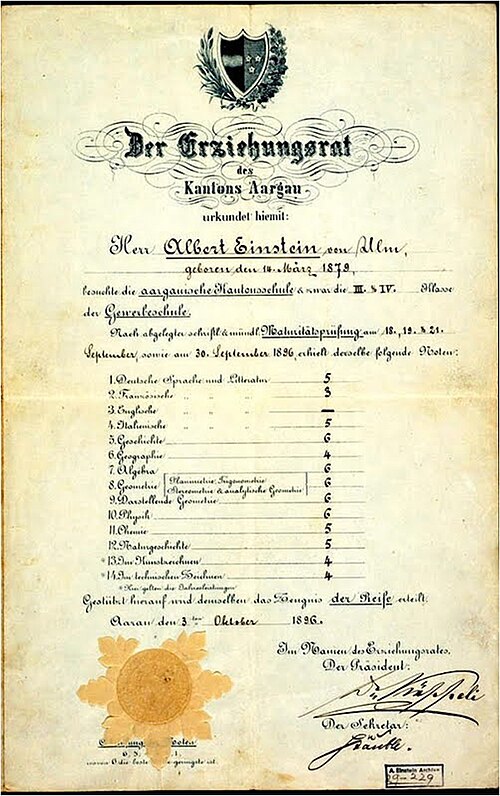 Der Erziehungsrat
des
Kantons Aargau
urkundet hiemit:
Herr Albert Einstein von Ulm,
geboren den 14. März 1879,
besuchte die aargauische Kantonsschule & zwar die III. & IV. Klasse
der Gewerbeschule.
Nach abgelegter schriftl. & mündl. Maturitätsprüfung am 18., 19. & 21.
September, sowie am 30. September 1896, erhielt derselbe folgende Noten:
1. Deutsche Sprache und Litteratur 5
2. Französische " " " 3
3. Englische " " " —
4. Italienische " " " 5
5. Geschichte 6
6. Geographie 4
7. Algebra 6
8. Geometrie Planimetrie, Trigonometrie 6
Stereometrie & analytische Geometrie
9. Darstellende Geometrie 6
10. Physik 6
11. Chemie 5
12. Naturgeschichte 5
*13. Im Kunstzeichnen 4
*14. Im technischen Zeichnen 4
* Hier gelten die Jahresleistungen
Gestützt hierauf wird demselben das Zeugnis der Reife erteilt.
Aarau den 3ten Oktober 1896.
Im Namen des Erziehungsrates,
Der Präsident:
Der Sekretär:
Noten
6. 5. 1.
wovon 6 die beste geringste ist.
A. Einstein Archive
29-229